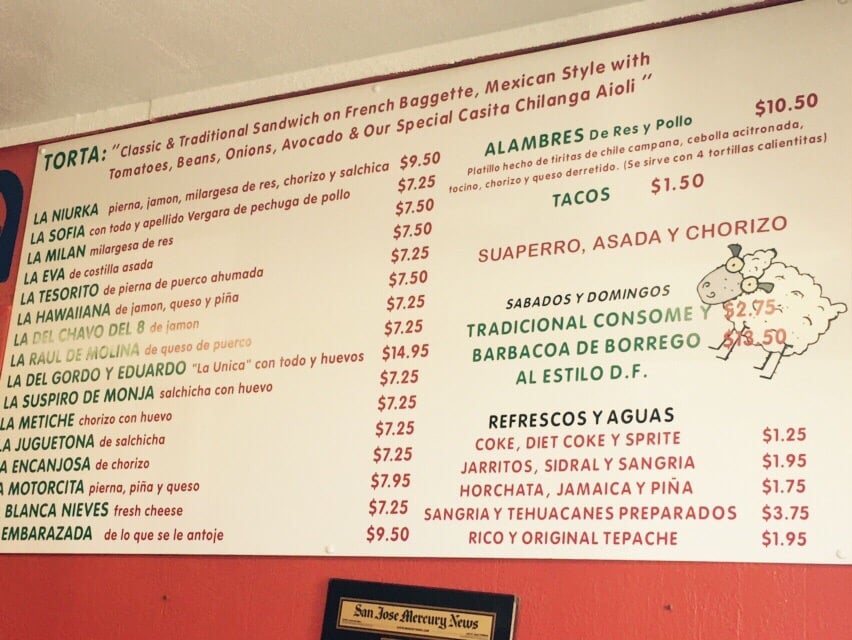 TORTA: "Classic & Traditional Sandwich on French Baggette, Mexican Style with
Tomatoes, Beans, Onions, Avocado & Our Special Casita Chilanga Aioli "
LA NIURKA pierna, jamon, milargesa de res, chorizo y salchica $9.50
LA SOFIA con todo y apellido Vergara de pechuga de pollo $7.25
LA MILAN milargesa de res $7.50
LA EVA de costilla asada $7.50
LA TESORITO de pierna de puerco ahumada $7.25
LA HAWAIIANA de jamon, queso y piña $7.50
LA DEL CHAVO DEL 8 de jamon $7.25
LA RAUL DE MOLINA de queso de puerco $7.25
LA DEL GORDO Y EDUARDO "La Unica" con todo y huevos $14.95
LA SUSPIRO DE MONJA salchicha con huevo $7.25
LA METICHE chorizo con huevo $7.25
LA JUGUETONA de salchicha $7.25
A ENCANJOSA de chorizo $7.25
A MOTORCITA pierna, piña y queso $7.95
BLANCA NIEVES fresh cheese $7.25
EMBARAZADA de lo que se le antoje $9.50
ALAMBRES De Res y Pollo $10.50
Platillo hecho de tiritas de chile campana, cebolla acitronada,
tocino, chorizo y queso derretido. (Se sirve con 4 tortillas calientitas)
TACOS $1.50
SUAPERRO, ASADA Y CHORIZO
SABADOS Y DOMINGOS
TRADICIONAL CONSOME Y $2.75
BARBACOA DE BORREGO $13.50
AL ESTILO D.F.
REFRESCOS Y AGUAS
COKE, DIET COKE Y SPRITE $1.25
JARRITOS, SIDRAL Y SANGRIA $1.95
HORCHATA, JAMAICA Y PIÑA $1.75
SANGRIA Y TEHUACANES PREPARADOS $3.75
RICO Y ORIGINAL TEPACHE $1.95
San Jose Mercury News